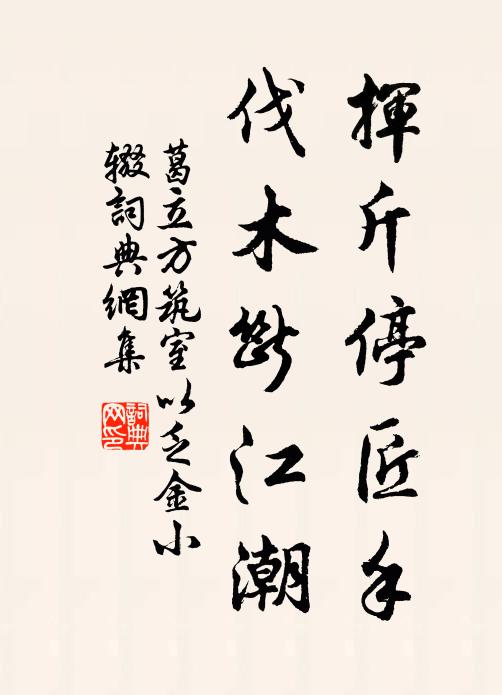 揮斤停匠手
伐木斷江潮
葛立方筑室以乏金小
辍詞典網集
詞典网印